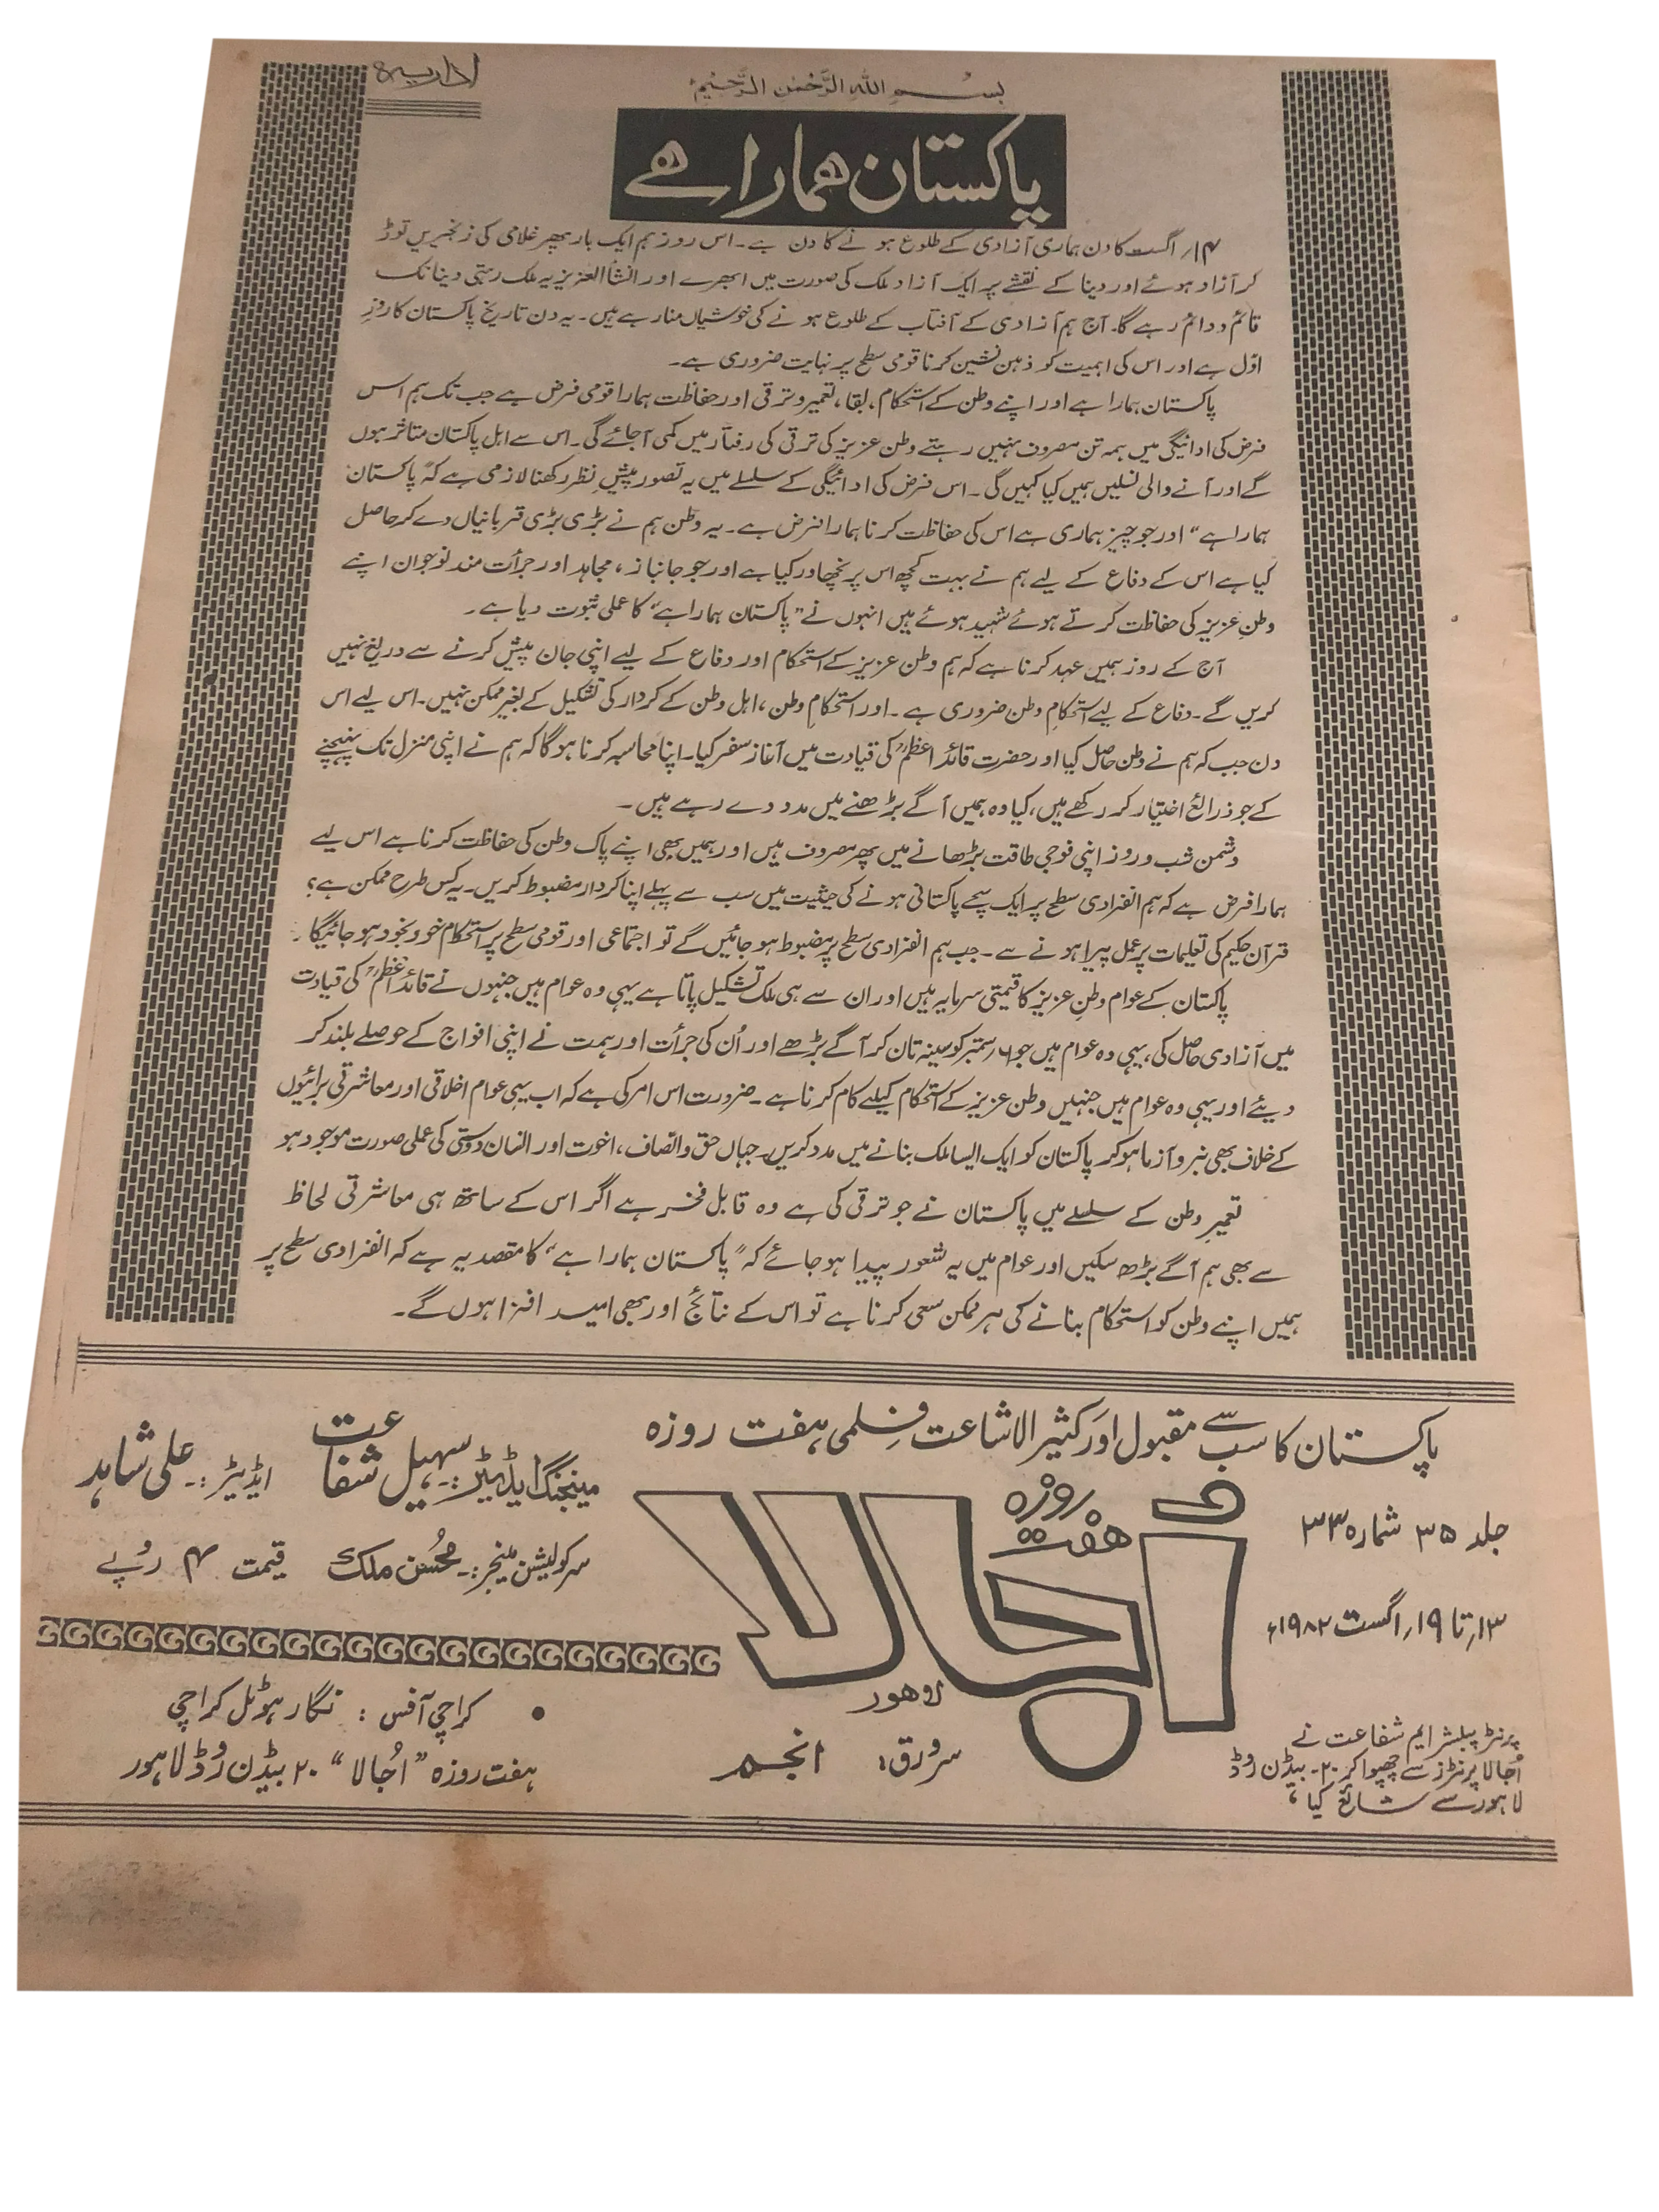 اداریہ
بسم اللہ الرحمٰن الرحیم
پاکستان ہمارا ہے
۱۴ر اگست کا دن ہماری آزادی کے طلوع ہونے کا دن ہے۔ اس روز ہم ایک بار پھر غلامی کی زنجیریں توڑ
کر آزاد ہوئے اور دینا کے نقشے پر ایک آزاد ملک کی صورت میں ابھرے اور انشأالعزیز یہ ملک رہتی دینا تک
قائم و دائم رہے گا۔ آج ہم آزادی کے آفتاب کے طلوع ہونے کی خوشیاں منا رہے ہیں۔ یہ دن تاریخ پاکستان کا روزِ
اوّل ہے اور اس کی اہمیت کو ذہن نشین کرنا قومی سطح پر نہایت ضروری ہے۔
پاکستان ہمارا ہے اور اپنے وطن کے استحکام، بقا، تعمیر و ترقی اور حفاظت ہمارا قومی فرض ہے جب تک ہم اس
فرض کی ادائیگی میں ہمہ تن مصروف نہیں رہتے وطن عزیز کی ترقی کی رفتار میں کمی آجائے گی۔ اس سے اہل پاکستان متاثر ہوں
گے اور آنے والی نسلیں ہمیں کیا کہیں گی۔ اس فرض کی ادائیگی کے سلسلے میں یہ تصور پیشِ نظر رکھنا لازمی ہے کہ ”پاکستان
ہمارا ہے“ اور جو چیز ہماری ہے اس کی حفاظت کرنا ہمارا فرض ہے۔ یہ وطن ہم نے بڑی بڑی قربانیاں دے کر حاصل
کیا ہے اس کے دفاع کے لیے ہم نے بہت کچھ اس پر نچھاور کیا ہے اور جو جانباز، مجاہد اور جرأت مند نوجوان اپنے
وطنِ عزیز کی حفاظت کرتے ہوئے شہید ہوئے ہیں انہوں نے ”پاکستان ہمارا ہے“ کا عملی ثبوت دیا ہے۔
آج کے روز ہمیں عہد کرنا ہے کہ ہم وطن عزیز کے استحکام اور دفاع کے لیے اپنی جان پیش کرنے سے دریغ نہیں
کریں گے۔ دفاع کے لیے استحکامِ وطن ضروری ہے۔ اور استحکامِ وطن، اہل وطن کے کردار کی تشکیل کے بغیر ممکن نہیں۔ اس لیے اس
دن جب کہ ہم نے وطن حاصل کیا اور حضرت قائد اعظمؒ کی قیادت میں آغازِ سفر کیا۔ اپنا محاسبہ کرنا ہو گا کہ ہم نے اپنی منزل تک پہنچنے
کے جو ذرائع اختیار کر رکھے ہیں، کیا وہ ہمیں آگے بڑھنے میں مدد دے رہے ہیں۔
دشمن شب و روز اپنی فوجی طاقت بڑھانے میں پھر مصروف ہیں اور ہمیں بھی اپنے پاک وطن کی حفاظت کرنا ہے اس لیے
ہمارا فرض ہے کہ ہم انفرادی سطح پر ایک سچے پاکستانی ہونے کی حیثیت میں سب سے پہلے اپنا کردار مضبوط کریں۔ یہ کس طرح ممکن ہے؟
قرآن حکیم کی تعلیمات پر عمل پیرا ہونے سے۔ جب ہم انفرادی سطح پر مضبوط ہو جائیں گے تو اجتماعی اور قومی سطح پر استحکام خود بخود ہو جائیگا۔
پاکستان کے عوام وطنِ عزیز کا قیمتی سرمایہ ہیں اور ان سے ہی ملک تشکیل پاتا ہے یہی وہ عوام ہیں جنہوں نے قائد اعظمؒ کی قیادت
میں آزادی حاصل کی، یہی وہ عوام ہیں جو ۶ر ستمبر کو سینہ تان کر آگے بڑھے اور اُن کی جرأت اور ہمت نے اپنی افواج کے حوصلے بلند کر
دیئے اور یہی وہ عوام ہیں جنہیں وطن عزیز کے استحکام کیلئے کام کرنا ہے۔ ضرورت اس امر کی ہے کہ اب یہی عوام اخلاقی اور معاشرتی برائیوں
کے خلاف بھی نبرد آزما ہو کر پاکستان کو ایک ایسا ملک بنانے میں مدد کریں۔ جہاں حق و انصاف، اخوت اور انسان دوستی کی عملی صورت موجود ہو
تعمیرِ وطن کے سلسلے میں پاکستان نے جو ترقی کی ہے وہ قابل فخر ہے اگر اس کے ساتھ ہی معاشرتی لحاظ
سے بھی ہم آگے بڑھ سکیں اور عوام میں یہ شعور پیدا ہو جائے کہ ”پاکستان ہمارا ہے“ کا مقصد یہ ہے کہ انفرادی سطح پر
ہمیں اپنے وطن کو استحکام بنانے کی ہر ممکن سعی کرنا ہے تو اس کے نتائج اور بھی امید افزا ہوں گے۔
پاکستان کا سب سے مقبول اور کثیر الاشاعت فلمی ہفت روزہ
ہفت روزہ
اُجالا
لاہور
جلد ۳۵ شمارہ ۳۳
۱۳؍ تا ۱۹؍ اگست ۱۹۸۲ء
پرنٹر پبلشر ایم شفاعت نے
اُجالا پرنٹرز سے چھپوا کر ۲۰۔ بیڈن روڈ
لاہور سے شائع کیا،
سرورق: انجم
مینجنگ ایڈیٹر:۔ سہیل شفاعت
ایڈیٹر:۔ علی شاہد
سرکولیشن مینجر:۔ محسُن ملک
قیمت ۴ روپے
• کراچی آفس: نگار ہوٹل کراچی
ہفت روزہ ”اُجالا“ ۲۰ بیڈن روڈ لاہور